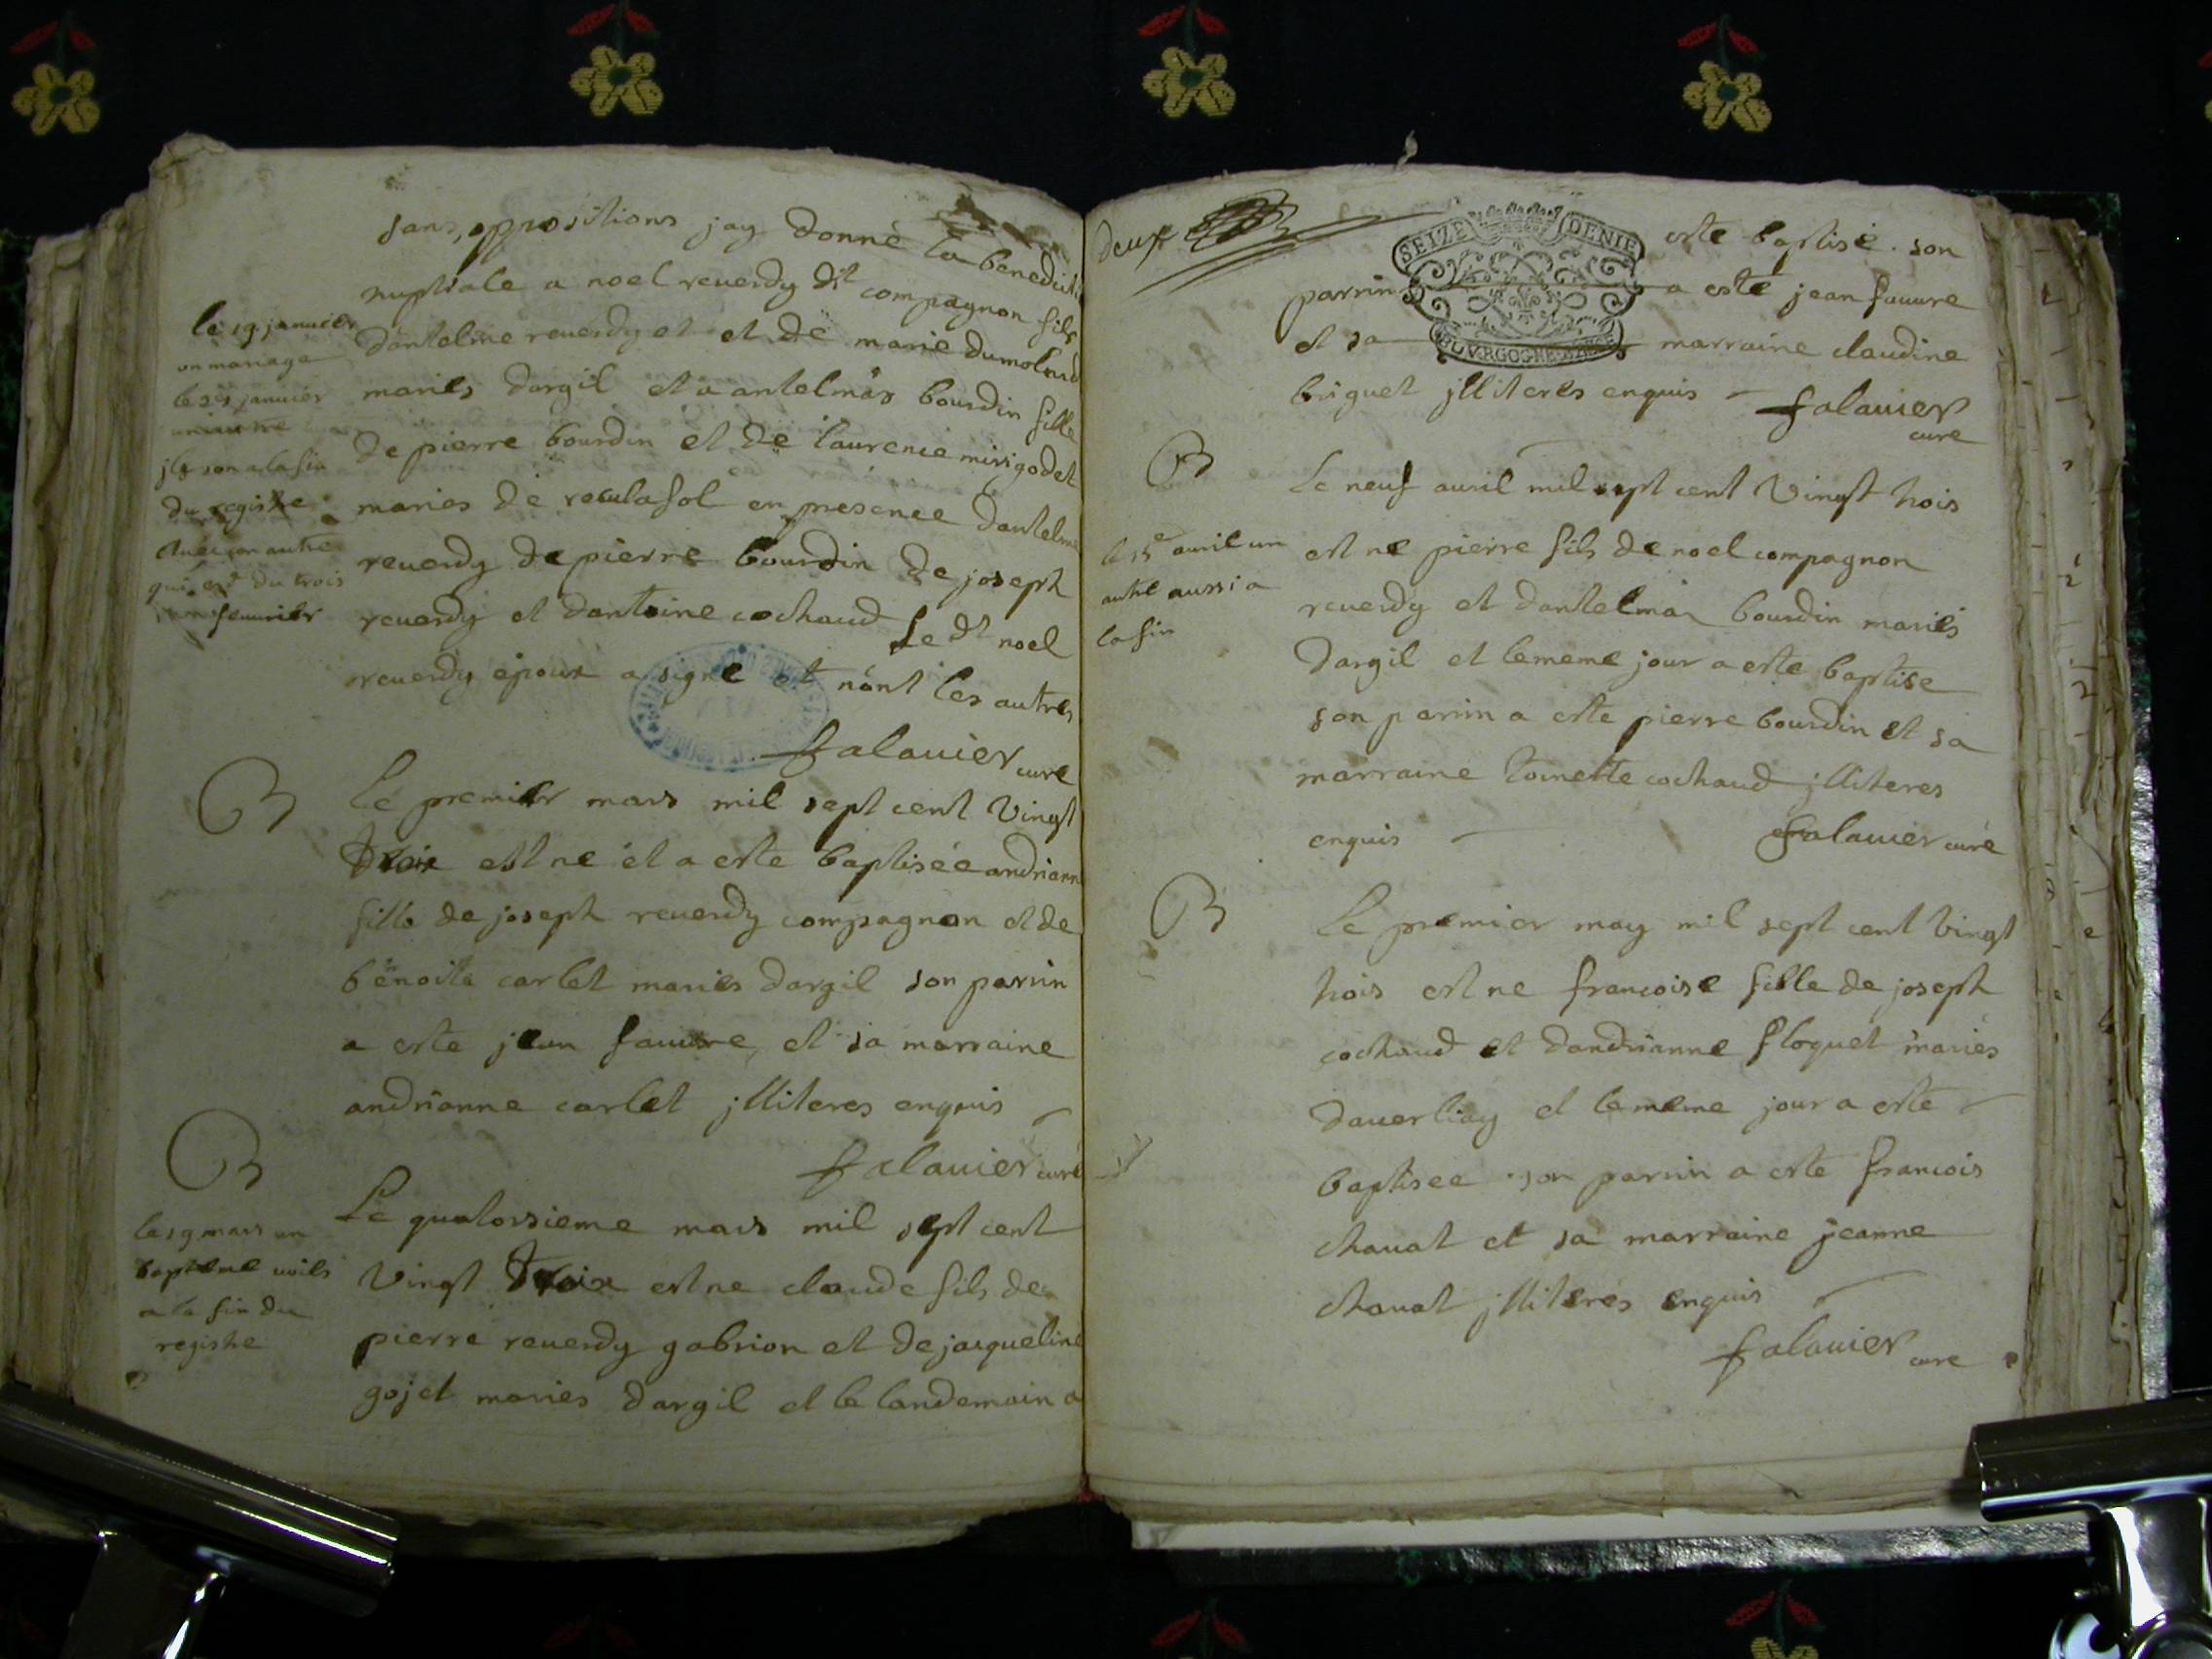 sans oppositions jay donné la benedicti
nuptiale a noel reuerdy dt compagnon fils
dantelme reuerdy et et de marie dumolard
mariés dargil et a antelmaz bourdin fille
de pierre bourdin et de laurence mirigodet
maries de roculafol en presence dantelme
reuerdy de pierre bourdin de joseph
reuerdy et dantoine cochaud Le dt noel
reuerdy epoux a signé et nont les autres
falauier curé
le 19 januier
un mariage
le 25 januier
jls son a la fin
du registre
auec un autre
qui est du trois
feuurier
B
Le premier mars mil sept cent Vingt
Troix est ne et a este baptisée andrianne
fille de joseph reuerdy compagnon et de
benoite carlet mariés dargil son parrin
a este jean fauure et sa marraine
andrianne carlet jlliteres enquis
falauier curé
B
Le quatorsieme mars mil sept cent
Vingt Troix est ne claude fils de
pierre reuerdy gabrion et de jacqueline
gojet mariés dargil et le landemain a
le 19 mars un
bapteme
a la fin du
registre
deux
SEIZE DENIE
BOVRGOGNE
este baptisé . son
parrin a esté jean fauure
et sa marraine claudine
briguet jlliteres enquis
falauier
curé
B
Le neuf auril mil sept cent Vingt trois
est né pierre fils de noel compagnon
reuerdy et dantelmaz bourdin mariés
dargil et le meme jour a este baptise
son parrin a este pierre bourdin et sa
marraine toinette cochaud jlliteres
enquis falauier curé
auril un
autre aussi a
la fin
B
Le premier may mil sept cent Vingt
trois est ne francoise fille de joseph
cochaud et dandrianne floquet mariés
dauerliaz et le meme jour a este
baptisee . son parrin a este francois
chauat et sa marraine jeanne
chauat jlliteres enquis
falauier curé